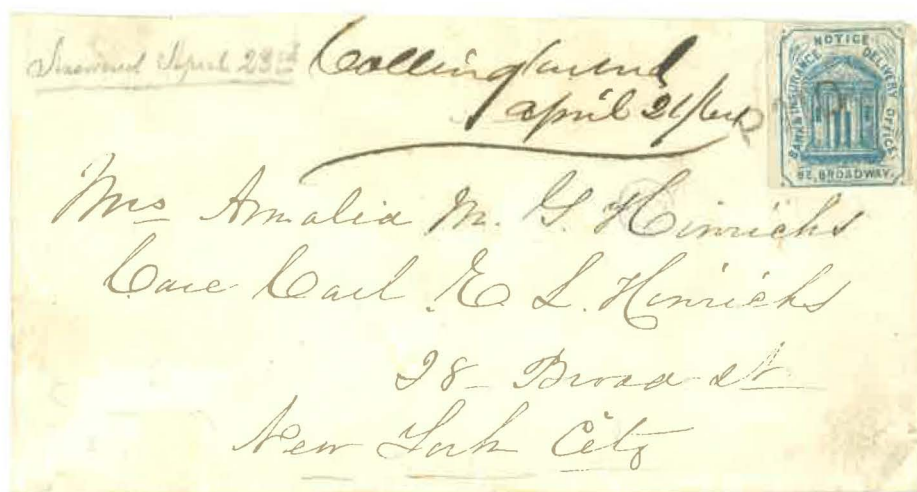 Answered April 23rd
Collingwood
April 21/64
NOTICE
BANK & INSURANCE
DELIVERY OFFICE
82, BROADWAY.
Mrs Amalia M. G. Hinrichs
Care Carl E L. Hinrichs
28 Broad St
New York City